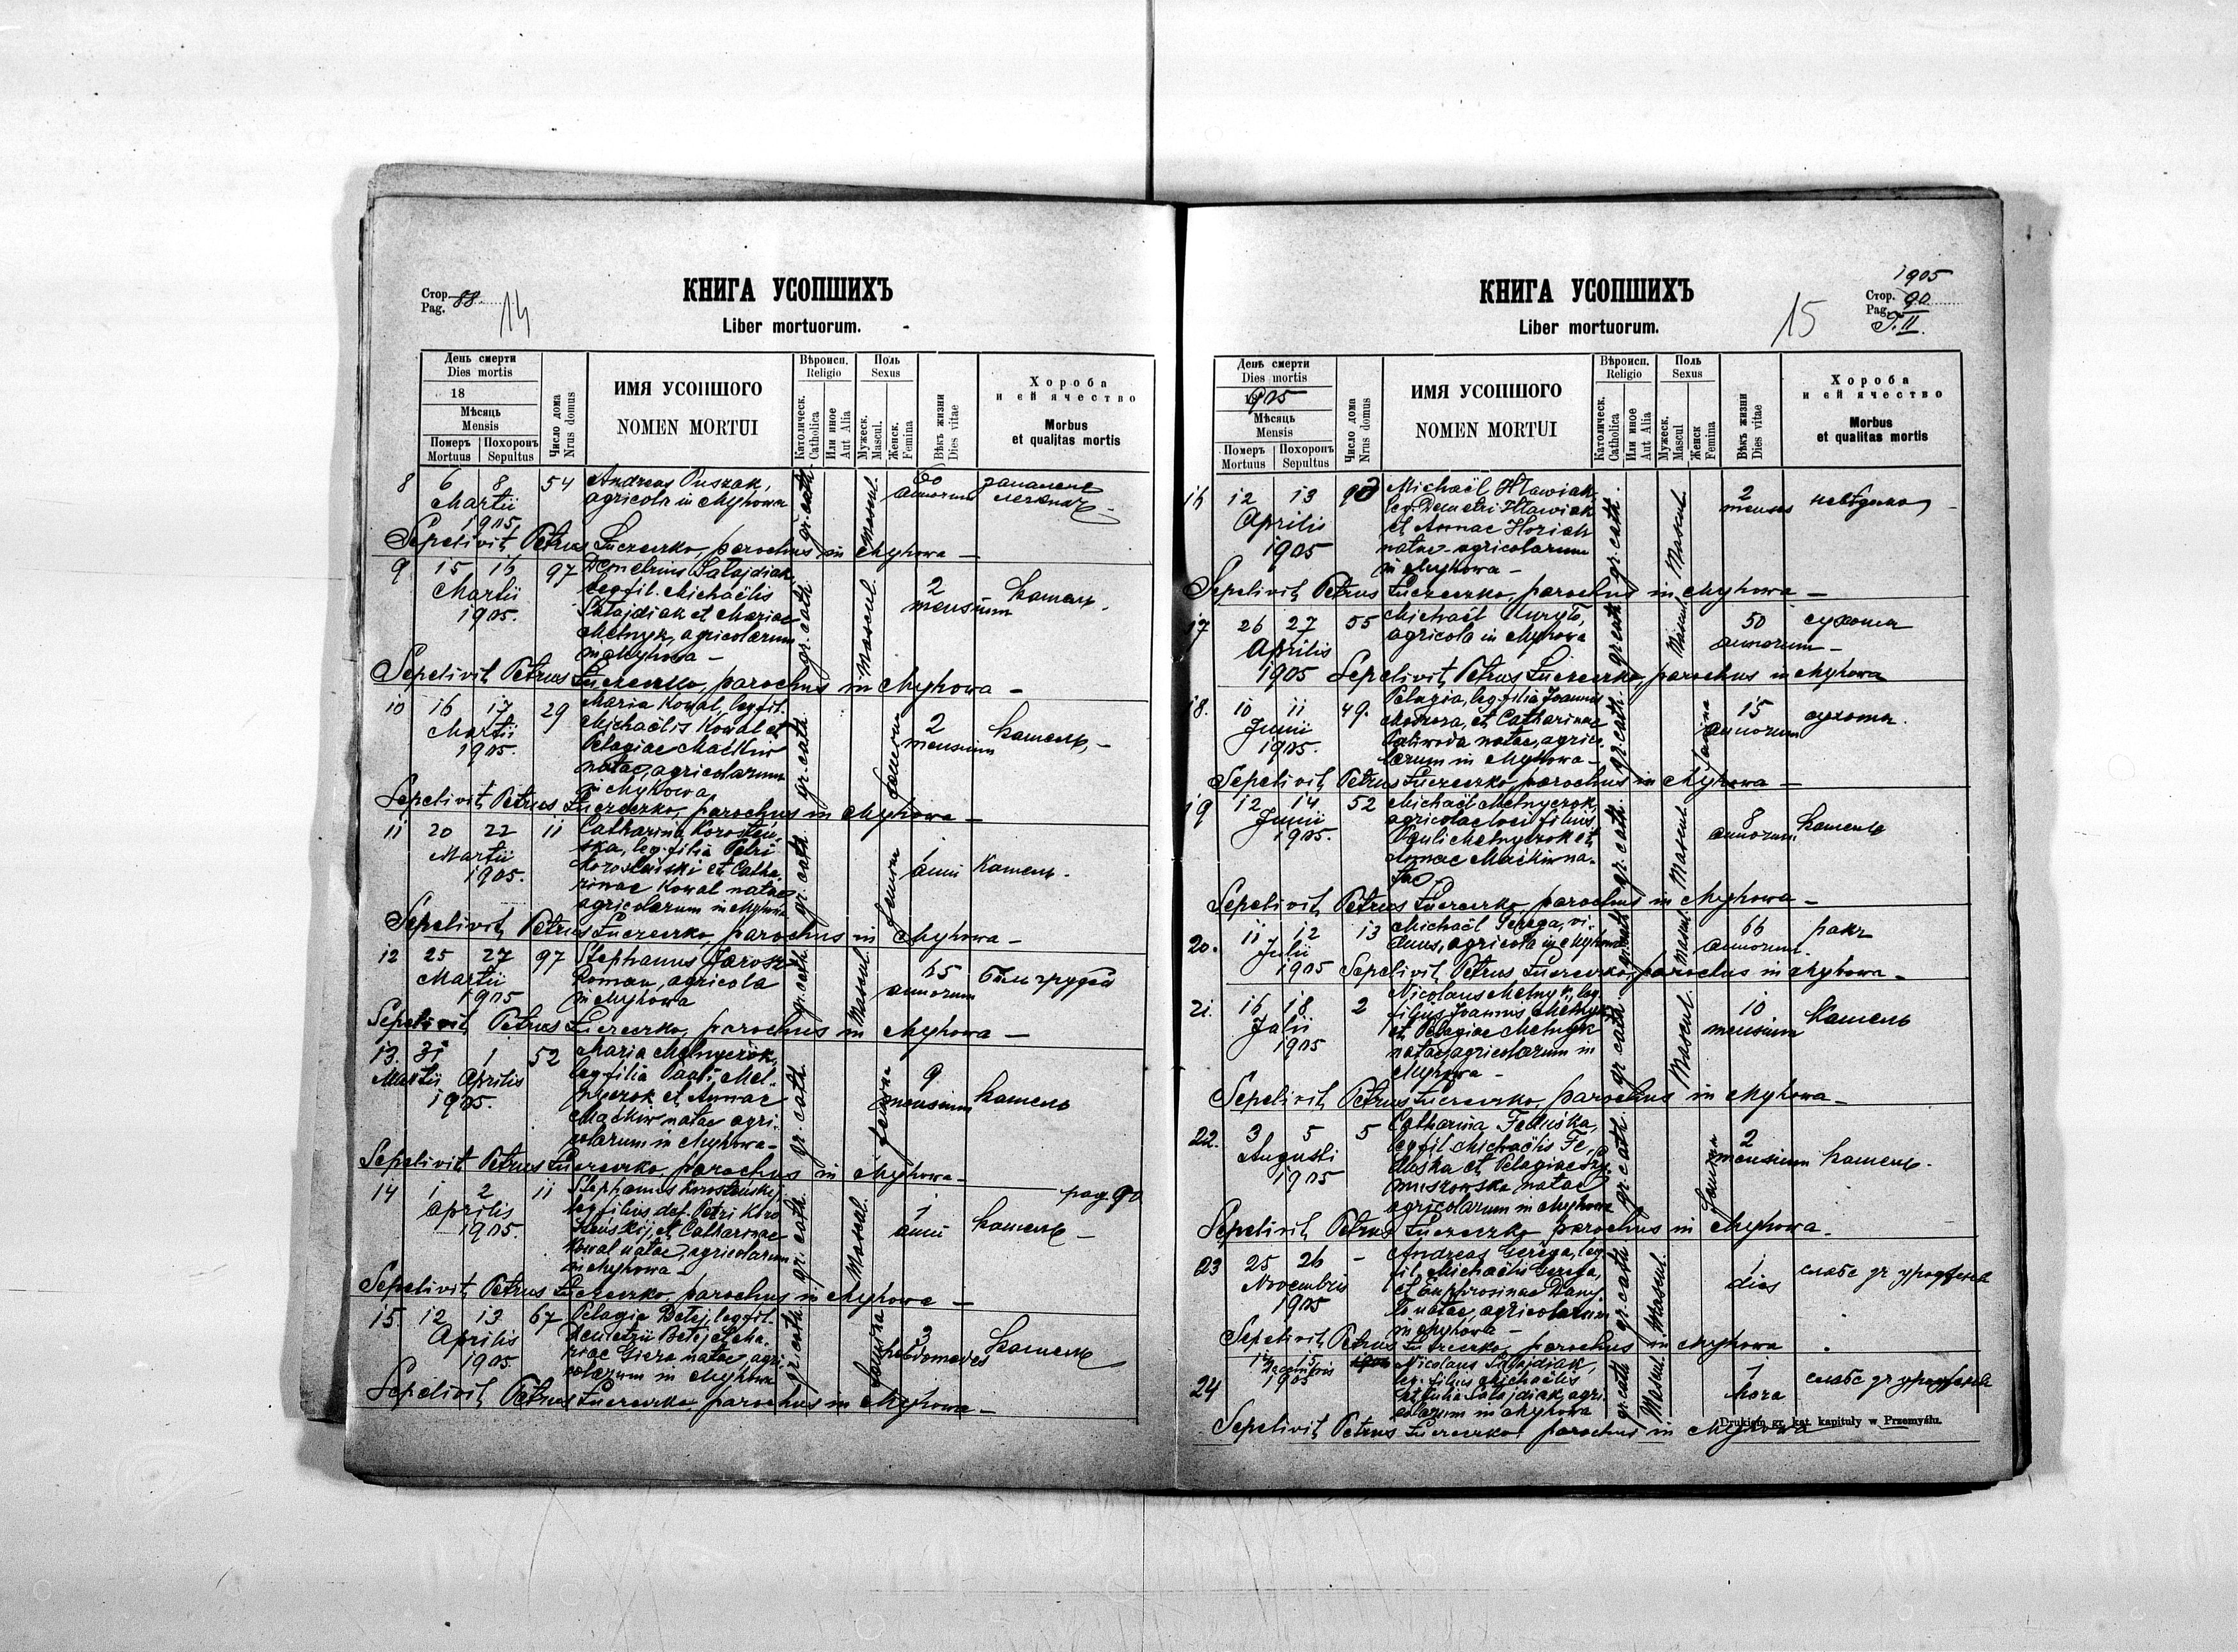 Стор. 88
Pag.
14
КНИГА УСОПШИХЪ
Liber mortuorum.
День смерти
Dies mortis
18
Мѣсяць
Mensis
Померъ Похоронъ
Mortuus Sepultus
Число дома
Nrus domus
ИМЯ УСОПШОГО
NOMEN MORTUI
Вѣроисп.
Religio
Католическ.
Catholica
Или иное
Aut Alia
Поль
Sexus
Мужеск.
Mascul.
Женск.
Femina
Вѣкъ жизни
Dies vitae
Хороба
и ей ячество
Morbus
et qualitas mortis
8 6 8 54 Andreas Puszak, gr. cath. Mascul. 60 запалене
Martii agricola in Myhowa annorum легких
1905
Sepelivit Petrus Łuczeczko, parochus in Myhowa —
9 15 16 97 Demetrius Salajdiak gr. cath. Mascul. 2 Кашель.
Martii leg. fil. Michaëlis mensium
1905. Salajdiak et Mariae
Melnyk, agricolarum
in Myhowa —
Sepelivit Petrus Łuczeczko, parochus in Myhowa —
10 16 17 29 Maria Kowal, leg. fil. gr. cath. femina 2 Кашель, —
Martii Michaëlis Kowal et mensium
1905. Pelagiae Maćkiw
natae, agricolarum
in Myhowa
Sepelivit Petrus Łuczeczko, parochus in Myhowa —
11 20 22 11 Catharina Korosteń- gr. cath. femina 1 Кашель.
Martii ska, leg. filia Petri anni
1905. Korosteński et Catha-
rinae Kowal natae
agricolarum in Myhowa
Sepelivit Petrus Łuczeczko, parochus in Myhowa —
12 25 27 97 Stephanus Jarosz gr. cath. Mascul. 65 біль грудей
Martii Roman, agricola annorum
1905 in Myhowa
Sepelivit Petrus Łuczeczko, parochus in Myhowa —
13. 31 1 52 Maria Melnyczok, gr. cath. femina 9 Кашель
Martii Aprilis leg. filia Pauli Mel- mensium
1905. nyczok et Annae
Maćkiw natae agri-
colarum in Myhowa —
Sepelivit Petrus Łuczeczko, parochus in Myhowa —
pag 90
14 1 2 11 Stephanus Korosteńskij gr. cath. Mascul. 1 Кашель —
Aprilis leg. filius def. Petri Koro anni
1905. steńskij, et Catharinae
Kowal natae, agricolarum
in Myhowa —
Sepelivit Petrus Łuczeczko, parochus in Myhowa —
15 12 13 67 Pelagia Betej, leg. fil. gr. cath. femina 3 Кашель
Aprilis Demetrii Betej et Ma- hebdomades
1905 riae Giera natae agri-
colarum in Myhowa
Sepelivit Petrus Łuczeczko, parochus in Myhowa —
1905
Стор. 90
Pag. T. II.
15
КНИГА УСОПШИХЪ
Liber mortuorum.
День смерти
Dies mortis
1905
Мѣсяць
Mensis
Померъ Похоронъ
Mortuus Sepultus
Число дома
Nrus domus
ИМЯ УСОПШОГО
NOMEN MORTUI
Вѣроисп.
Religio
Католическ.
Catholica
Или иное
Aut Alia
Поль
Sexus
Мужеск.
Mascul
Женск
Femina
Вѣкъ жизни
Dies vitae
Хороба
и ей ячество
Morbus
et qualitas mortis
16 12 13 Michaël Hławiak gr. cath. Mascul. 2
Aprilis leg. Demetri Hławiak menses
1905 et Annae Horich
natae agricolarum
in Myhowa —
Sepelivit Petrus Łuczeczko, parochus in Myhowa —
17 26 27 55 Michaël Kuryło, gr. cath. Mascul. 50 сухоти
Aprilis agricola in Myhowa annorum —
1905 Sepelivit Petrus Łuczeczko, parochus in Myhowa
18. 10 11 49. Pelagia, leg. filia Joannis gr. cath. femina 15 сухоти.
Junii et Catharinae annorum
1905. Paliwoda natae, agrico-
larum in Myhowa —
Sepelivit Petrus Łuczeczko, parochus in Myhowa —
19 12 14 52 Michaël Melnyczok, gr. cath. Mascul. 8 Кашель
Junii agricolae loci filius annorum
1905. Pauli Melnyczok et
Annae Maćkiw na-
tae
Sepelivit Petrus Łuczeczko, parochus in Myhowa —
20. 11 12 13 Michaël Gerega, vi- gr. cath. Mascul. 66 ракъ
Julii duus, agricola in Myhowa annorum.
1905 Sepelivit Petrus Łuczeczko, parochus in Myhowa —
21. 16 18 2 Nicolaus Melnyk, leg. gr. cath. Mascul. 10 Кашель
Julii filius Joannis Melnyk mensium
1905 et Pelagiae Melnyk
natae agricolarum in
Myhowa —
Sepelivit Petrus Łuczeczko, parochus in Myhowa —
22. 3 5 5 Catharina Feduśka, gr. cath. femina 2 Кашель.
Augusti leg. fil. Michaëlis Fe- mensium
1905 duśka et Pelagiae Szy-
muszowska natae
agricolarum in Myhowa
Sepelivit Petrus Łuczeczko parochus in Myhowa.
23 25 26 — Andreas Gerega, leg. gr. cath. Mascul. 1 слабе зъ уродженя
Novembris fil. Michaëlis Gerega, dies
1905 et Euphrosinae Dany-
ło natae, agricolarum
in Myhowa —
Sepelivit Petrus Łuczeczko, parochus in Myhowa
24 15 Nicolaus Salajdiak, gr. cath. Mascul. 1 слабе зъ уродженя
Decembris leg. filius Michaëlis hora
1905 et Julia Salajdiak, agri-
colarum in Myhowa
Drukiem gr. kat. kapituły w Przemyślu.
Sepelivit Petrus Łuczeczko, parochus in Myhowa